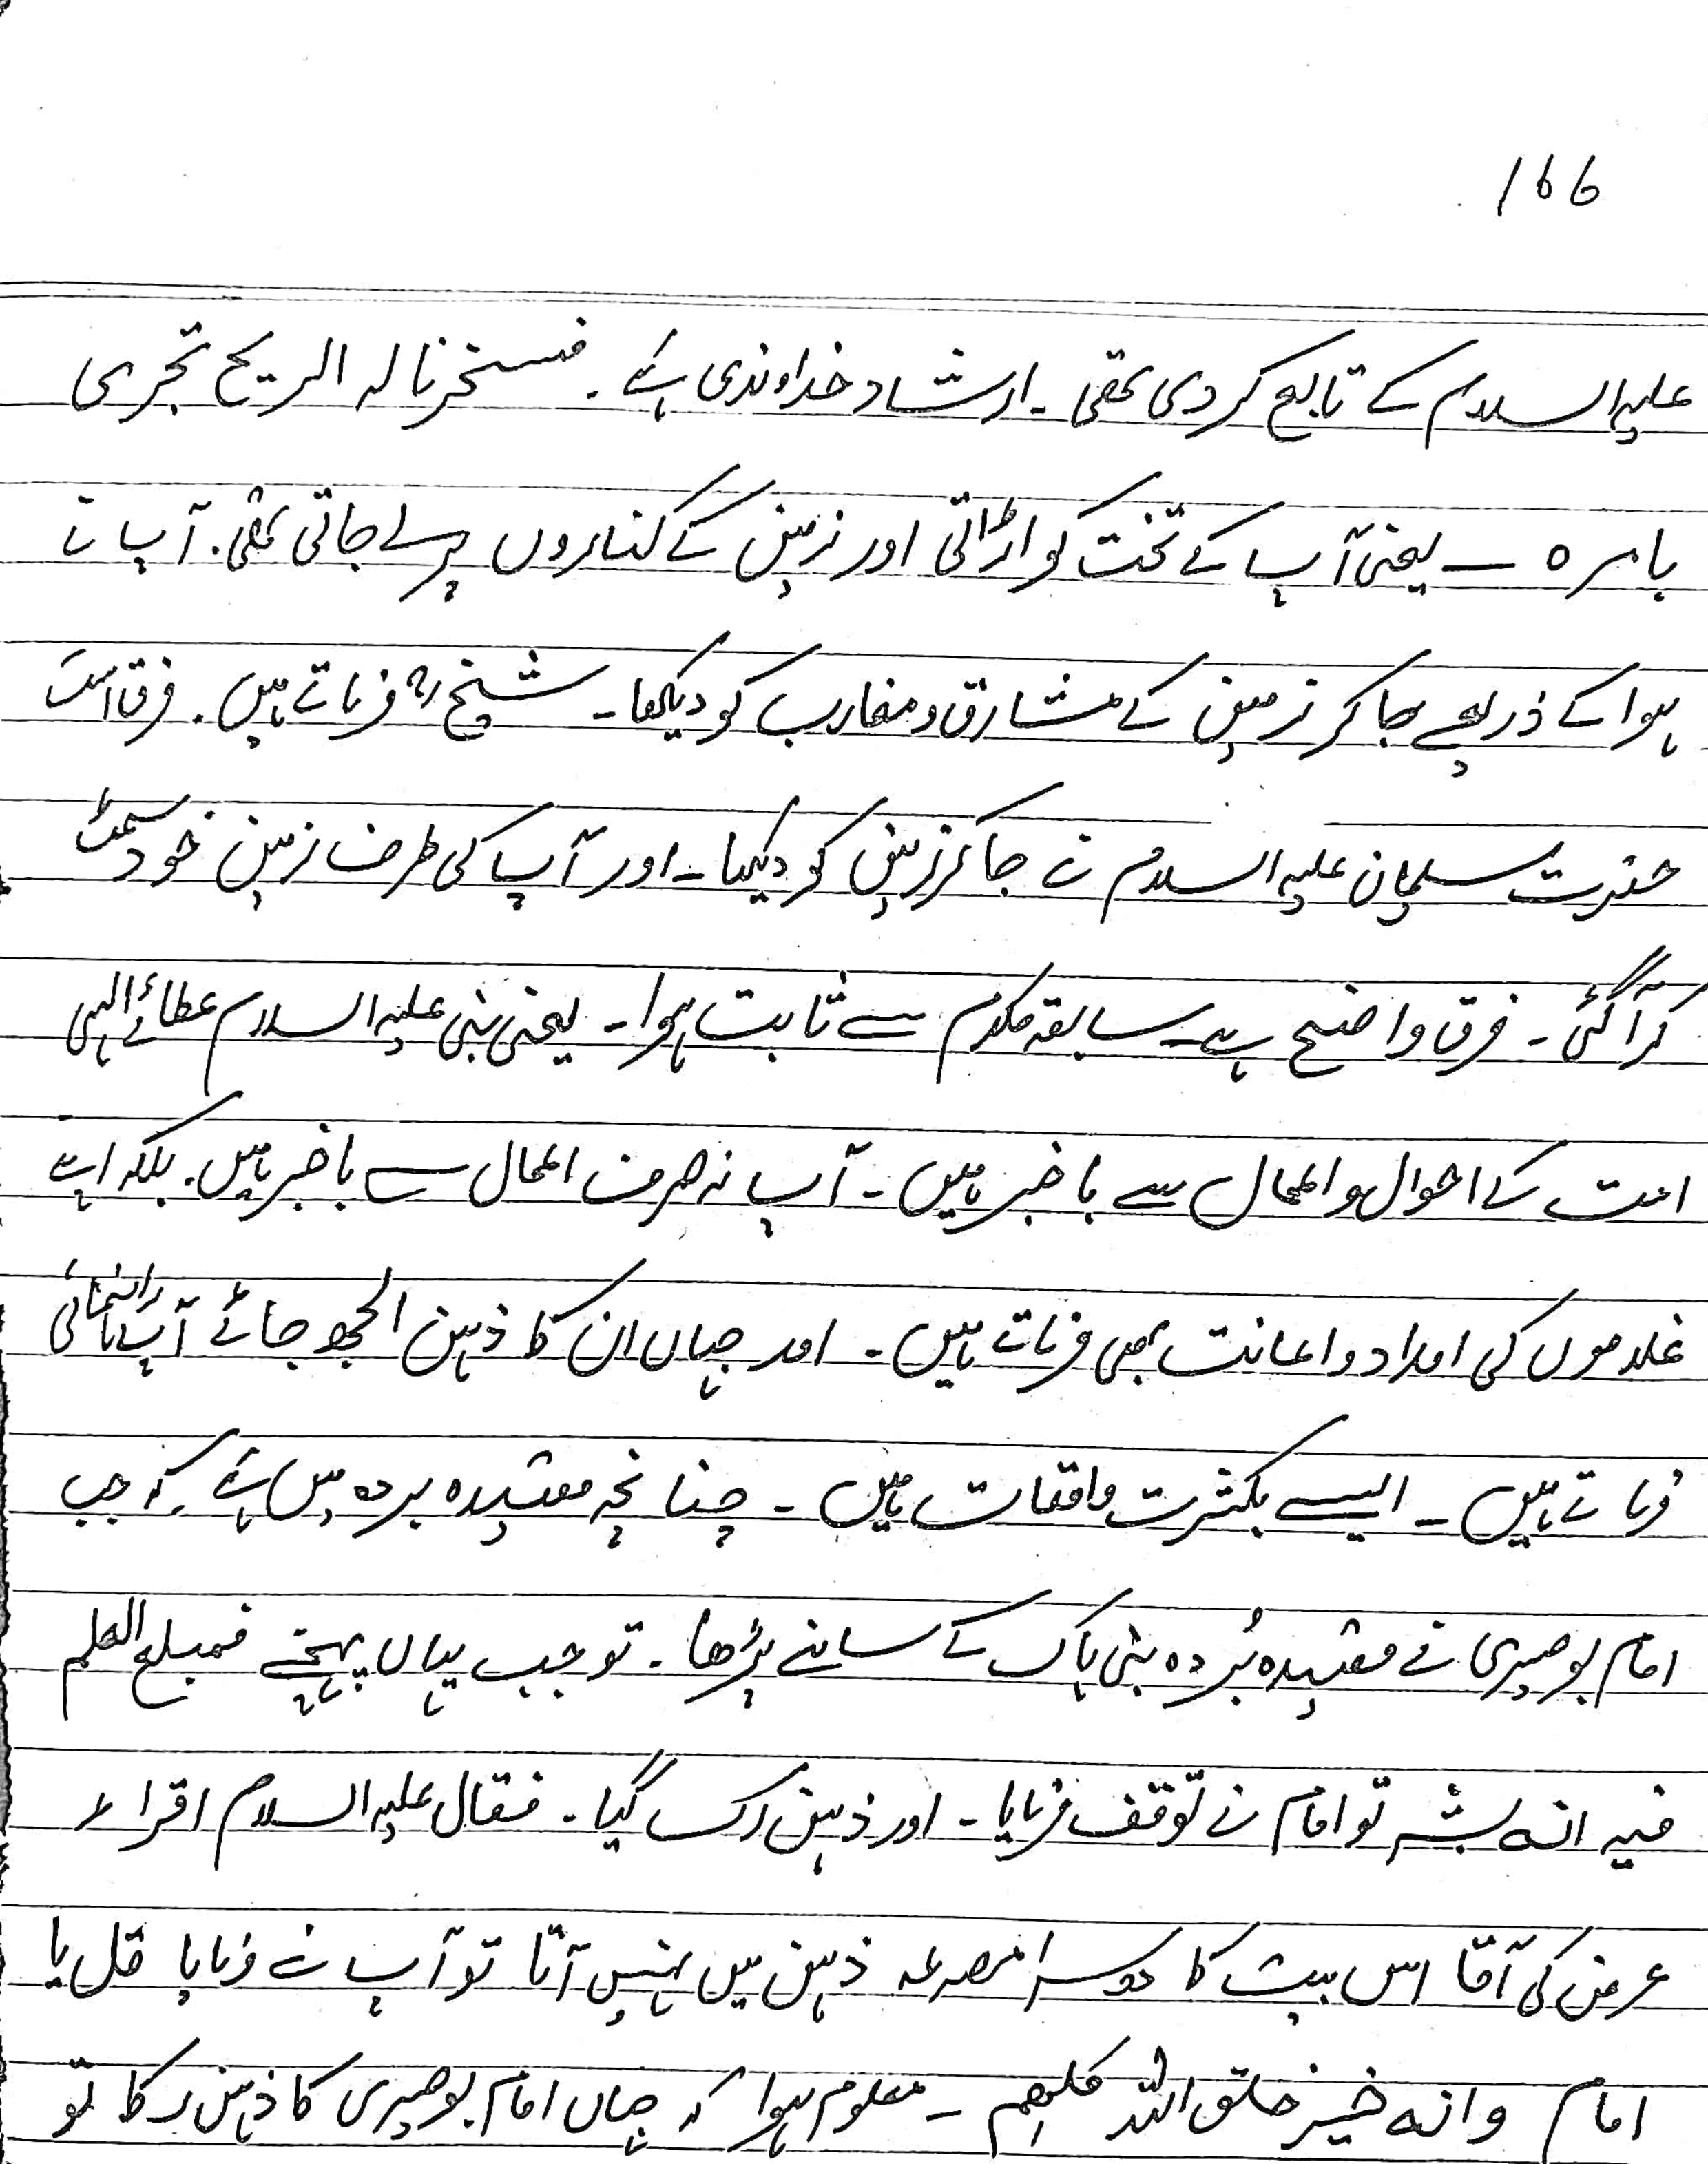 166
علیہ السلام کے تابع کر دی تھی ۔ ارشاد خداوندی ہے ۔ فسخرنا لہ الریح تجری
بامرہ ۔ یعنی آپ کے تخت کو اڑاتی اور زمین کے کناروں پر لے جاتی تھی ۔ آپ نے
ہوا کے ذریعے جا کر زمین کے مشارق و مغارب کو دیکھا ۔ شیخ رح فرماتے ہیں ۔ فرق است
حضرت سلیمان علیہ السلام نے جا کر زمین کو دیکھا ۔ اور آپ کی طرف زمین خود سمٹ
کر آ گئی ۔ فرق واضح ہے ۔ سابقہ کلام سے ثابت ہوا ۔ یعنی نبی علیہ السلام عطائے الہی
امت کے احوال و اعمال سے باخبر ہیں ۔ آپ نہ صرف اعمال سے باخبر ہیں ۔ بلکہ اپنے
غلاموں کی امداد و اعانت بھی فرماتے ہیں ۔ اور جہاں ان کا ذہن الجھ جائے آپ راہنمائی
فرماتے ہیں ۔ ایسے بکثرت واقعات ہیں ۔ چنانچہ قصیدہ بردہ میں ہے کہ جب
امام بوصیری نے قصیدہ بُردہ نبی پاک کے سامنے پڑھا ۔ تو جب یہاں پہنچے فمبلغ العلم
فیہ انہ بشر تو امام نے توقف فرمایا ۔ اور ذہن رک گیا ۔ فقال علیہ السلام اقراء
عرض کی آقا اس بیت کا دوسرا مصرعہ ذہن میں نہیں آتا تو آپ نے فرمایا قل یا
امام وانہ خیر خلق اللہ کلھم ۔ معلوم ہوا کہ جہاں امام بوصیری کا ذہن رکا تو